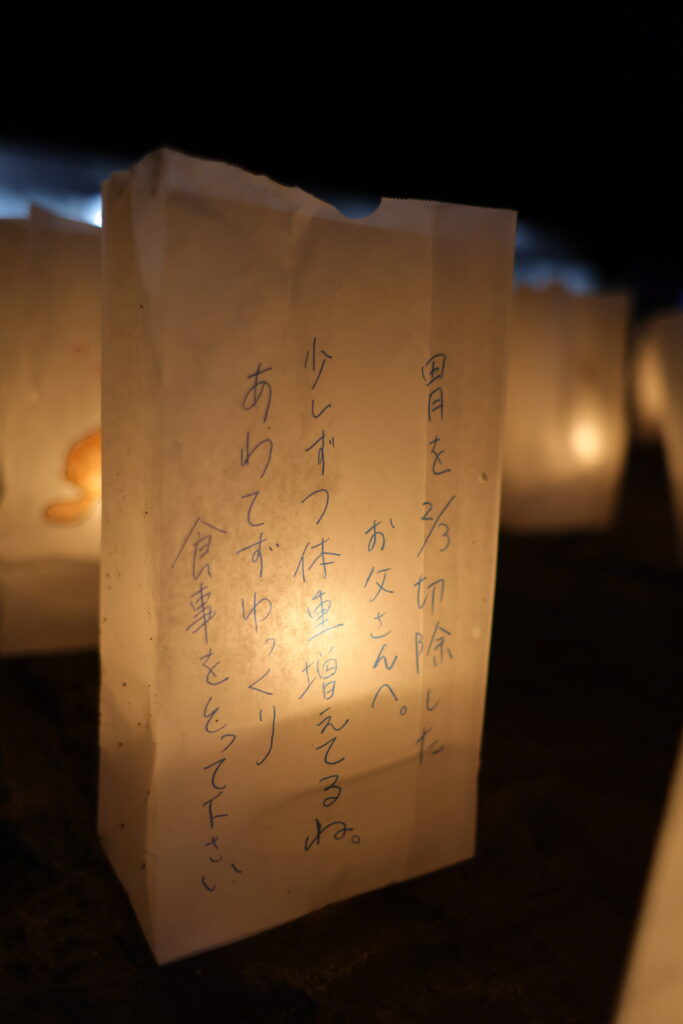 胃を2/3切除した
お父さんへ。
少しずつ体重増えてるね。
あわてずゆっくり
食事をとって下さい